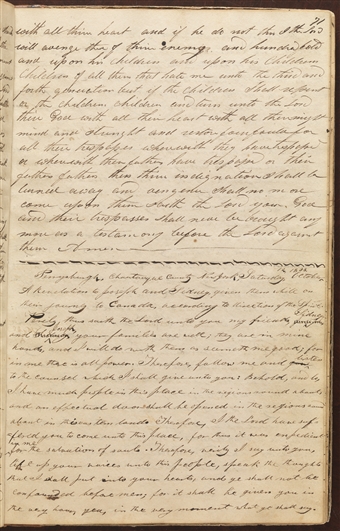 71
with all thine heart and if he do not this I the Lord
will avenge thee of thine enemy an hundred fold
and upon his children and upon his childrens
Children of all them that hate me unto the third and
forth generation but if the Children shall repent
or the children children and turn unto the Lord
their God with all their heart with all their might
mind and strength and restore four fould for
all their trespasses wherewith they have trespassed
or wherewith their fathers have trespased or their
fathers fathers then thine indignation shall be
turned away and vengence shall no more
come upon them saith the Lord your God
and their trespasses shall never be brought any
more as a testamony before the Lord against
them Amen
Perrysburgh, Chautauque County N. York, Saturday October
A Revelation to Joseph and Sidney given them while on
their Journey to Canada, according to direction of the Spirit
Verily, thus saith the Lord unto you my friends, Sidney
and Joseph your families are well; they are in mine
hands, and I will do with them as seemeth me good; for
in me there is all power. Therefore, follow me and listen
to the council which I shall give unto you: Behold, and lo,
I have much people in this place, in the regions round about;
and an effectual door shall be opened in the regions round
about in this eastern land. Therefore, I the Lord have suf-
fered you to come unto this place, for thus it was expedient in me
for the salvation of souls. Therefore, verily I say unto you,
lift up your voices unto this people, speak the thoughts
that I shall put into your hearts, and ye shall not be
confounded before men, for it shall be given you in
the very hour, yea, in the very moment what ye shall say.